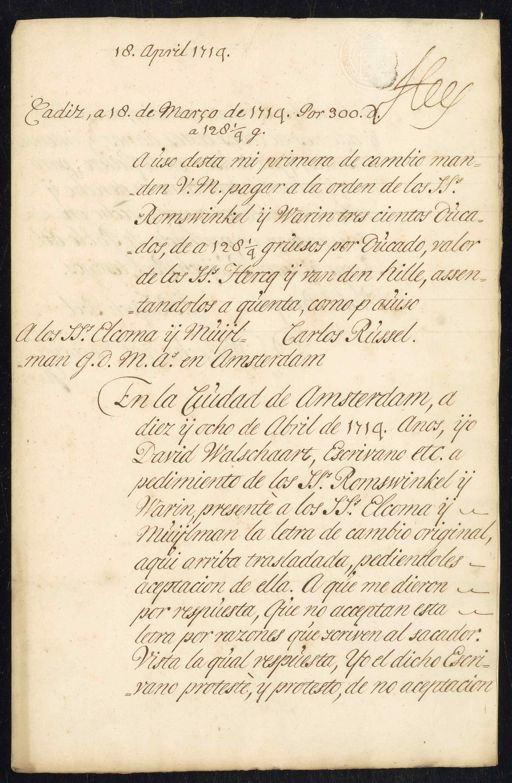 18. April 1714.
Cadiz, a 18. de Março de 1714. Por 300. D.
a 128 1/4 g.
A uso desta mi primera de cambio man-
-den V.M. pagar a la orden de los SS.rs
Romswinkel ÿ Warin tres cientos Duca-
-dos, de a 128 1/4 gruesos por Ducado, valor
de los SS.rs Hercq ÿ van den hille, assen-
-tandolos a quenta, como p aviso
A los SS.rs Elcoma ÿ Muijl- Carlos Russel.
-man q. D. M. a.s en Amsterdam
En la Ciudad de Amsterdam, a
diez ÿ ocho de Abril de 1714. Anos, ÿo
David Walschaart, Escrivano etc. a
pedimiento de los SS.rs Romswinkel ÿ
Warin, presentè a los SS.rs Elcoma ÿ
Muijlman la letra de cambio original,
aqui arriba trasladada, pediendoles
aceptacion de ella. A que me dieron
por respuesta, Que no acceptan esta
letra por razones que scriven al sacador.
Vista la qual respuesta, Yo el dicho Escri-
-vano protestè, y protesto, de no aceptacion